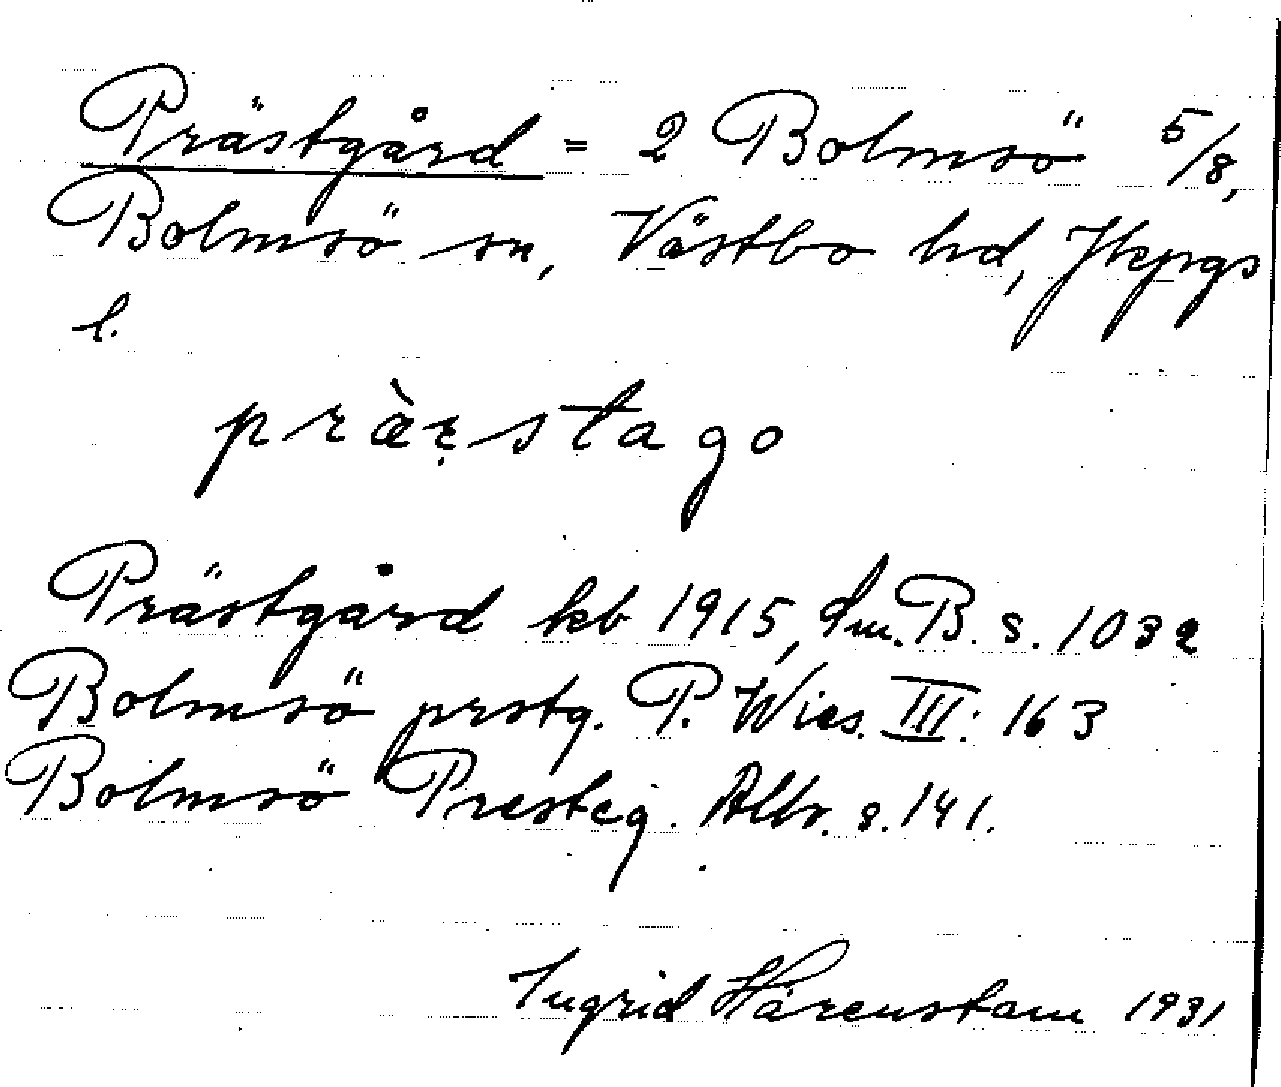 Prästgård = 2 Bolmsö 5/8,
Bolmsö sn, Västbo hd, Jkpgs
l.
præ̀ṛstago
Prästgård kb 1915, Sm. B. s. 1032
Bolmsö prstg. P. Wies. III: 163
Bolmsö Presteg. Allv. s. 141.
Ingrid Härenstam 1931